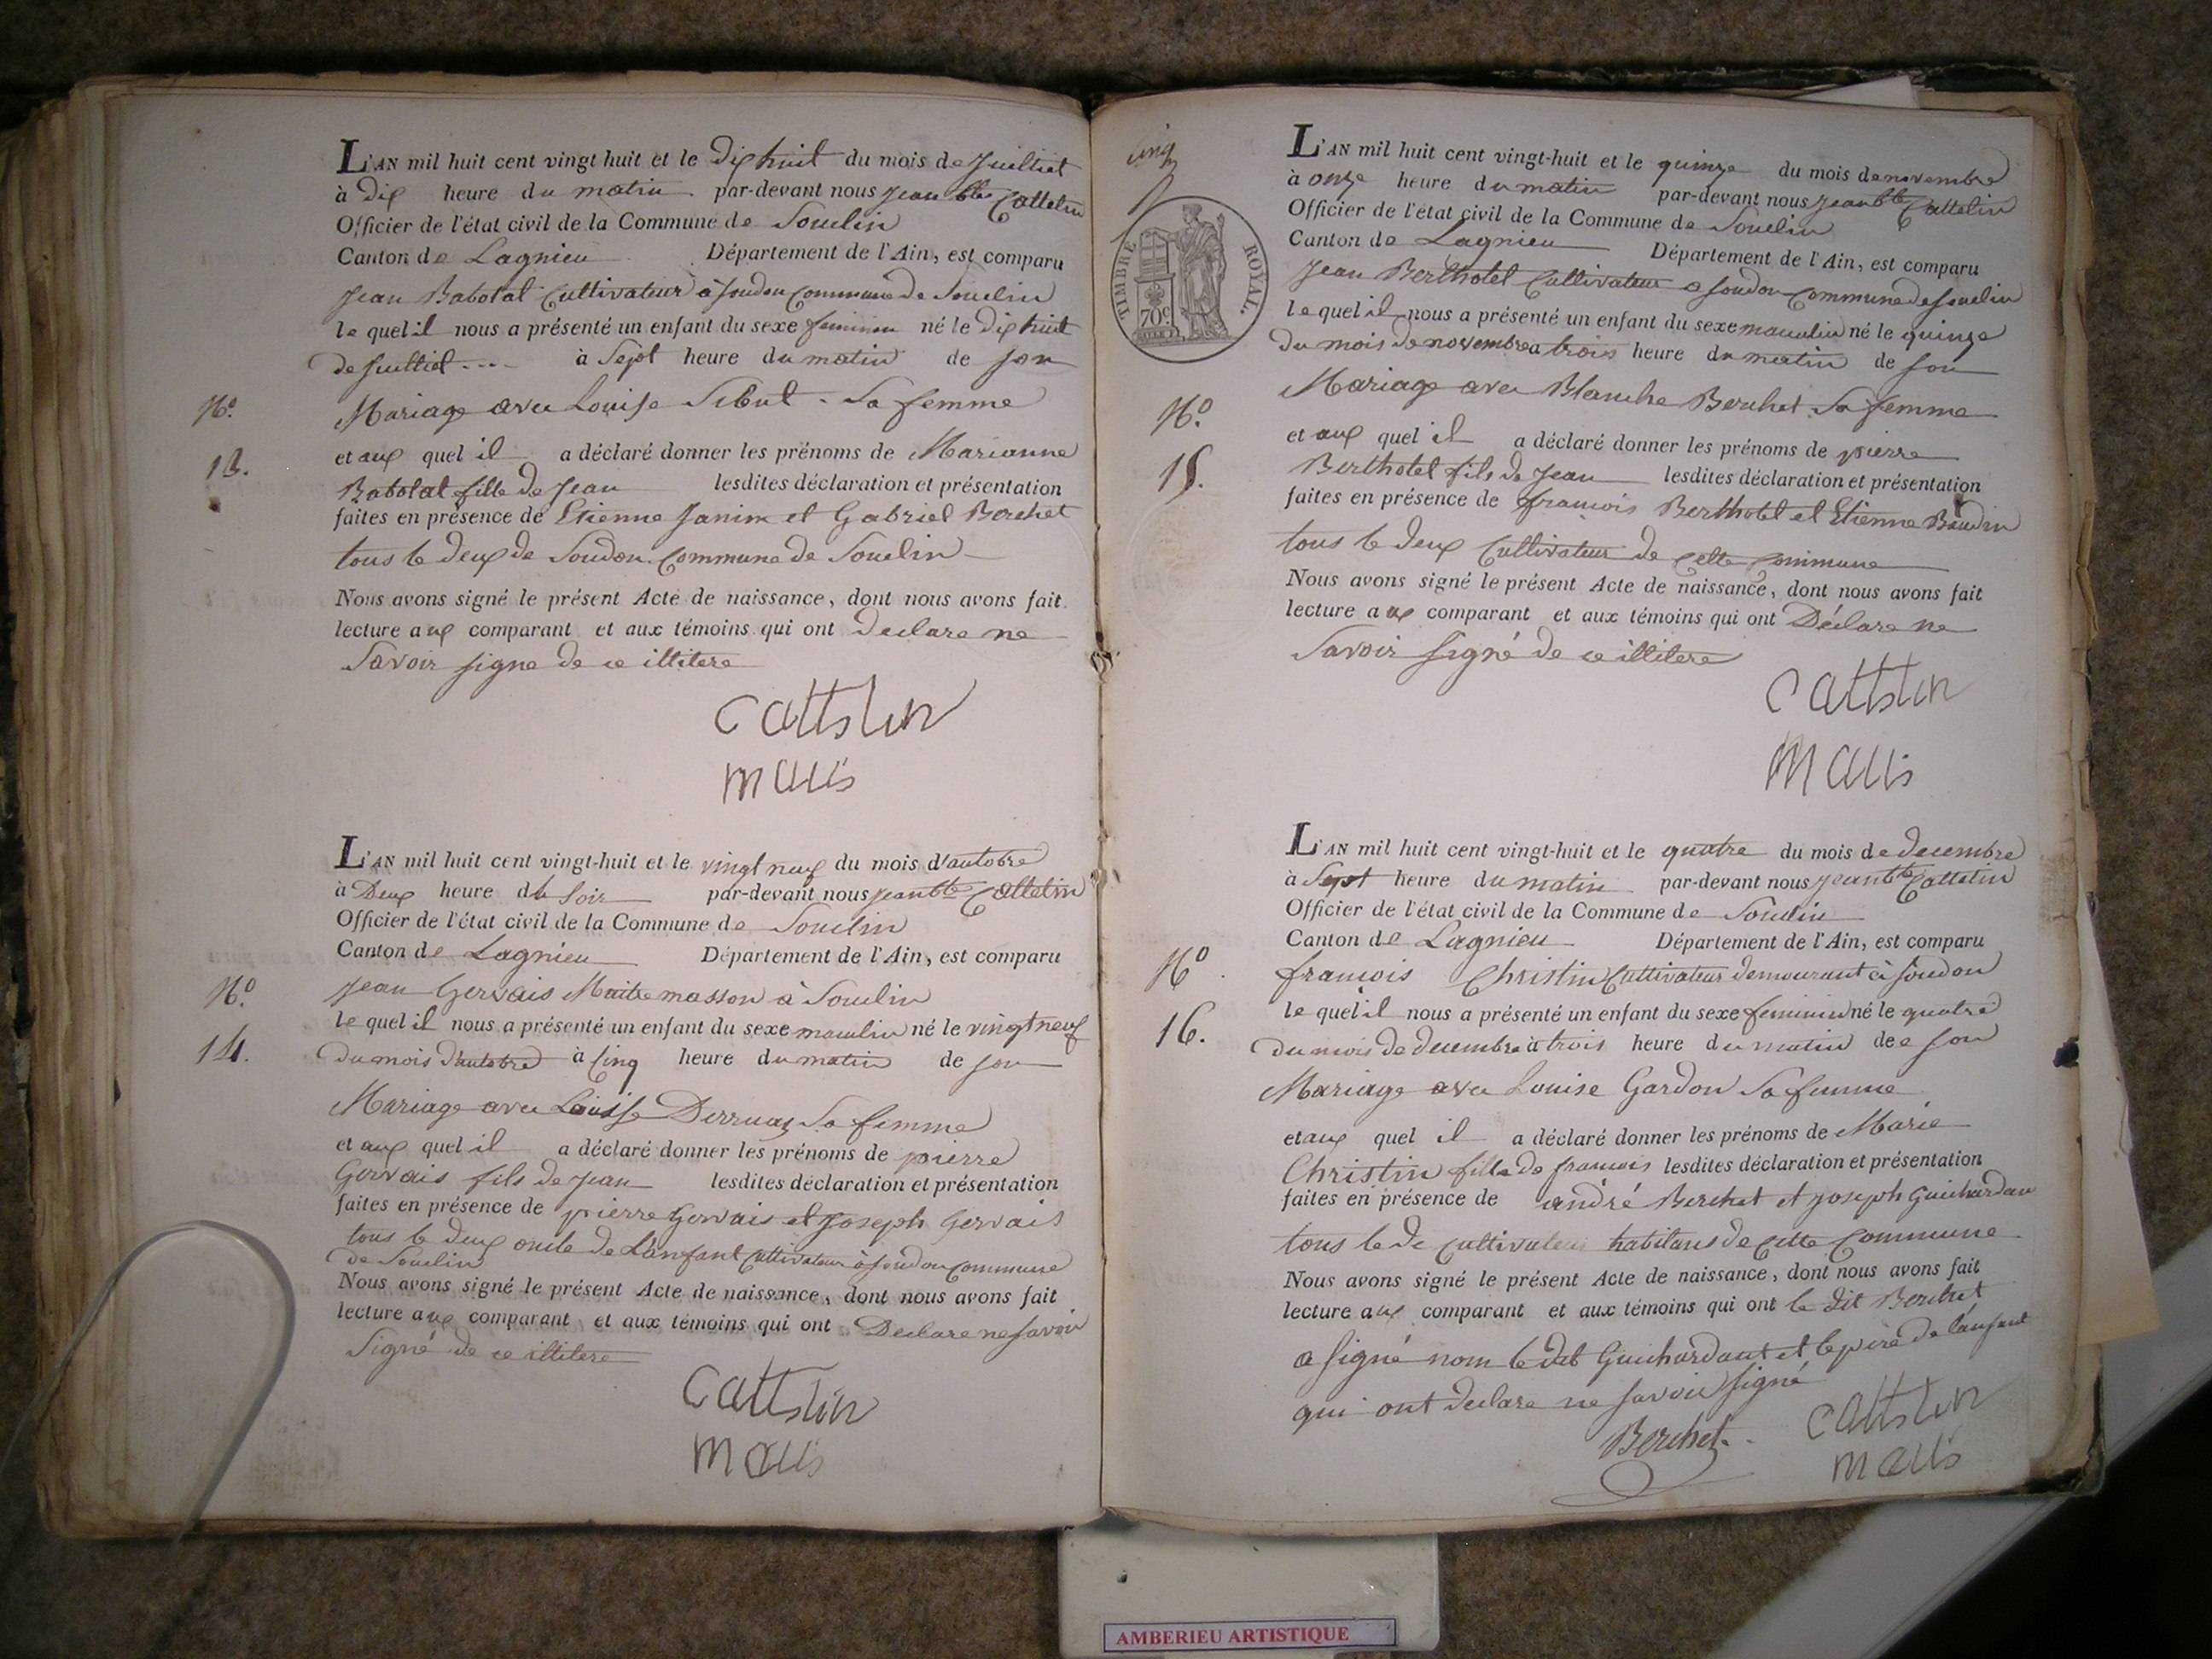 L'AN mil huit cent vingt huit et le Dix huit du mois de Juilliet
à Dix heure du matin par-devant nous jean bte Cattelin
Officier de l'état civil de la Commune de Souclin
Canton de Lagnieu Département de l'Ain, est comparu
Jean Babolat Cultivateur à Soudon Commune de Souclin
le quel il nous a présenté un enfant du sexe feminin né le Dix huit
de Juilliet à Sept heure du matin de son
Mariage avec Louise Sibut Sa femme
et aux quel il a déclaré donner les prénoms de Marianne
Babolat fille de Jean lesdites déclaration et présentation
faites en présence de Etienne Janim et Gabriel Berchet
tous le deux de Soudon Commune de Souclin
Nous avons signé le présent Acte de naissance, dont nous avons fait
lecture aux comparant et aux témoins qui ont Declare ne
Savoir signe de ce illitere
Cattelin
maiis
N.o
13.
L'AN mil huit cent vingt-huit et le vingt neuf du mois d'autobre
à Deux heure du Soir par-devant nous jean bte Cattelin
Officier de l'état civil de la Commune de Souclin
Canton de Lagnieu Département de l'Ain, est comparu
Jean Gervais Maitre masson à Souclin
le quel il nous a présenté un enfant du sexe masculin né le vingt neuf
du mois d'autobre à Cinq heure du matin de son
Mariage avec Louise Derruaz Sa femme
et aux quel il a déclaré donner les prénoms de pierre
Gervais fils de Jean lesdites déclaration et présentation
faites en présence de pierre Gervais et Joseph Gervais
tous le deux oncle de L'anfant Cultivateur à Soudon Commune
de Souclin
Nous avons signé le présent Acte de naissance, dont nous avons fait
lecture aux comparant et aux témoins qui ont Declare ne Savoir
Signé de ce illitere
Cattelin
maiis
N.o
14.
cinq
TIMBRE ROYAL
70c
L'AN mil huit cent vingt-huit et le quinze du mois de novembre
à onze heure du matin par-devant nous jean bte Cattelin
Officier de l'état civil de la Commune de Souclin
Canton de Lagnieu Département de l'Ain, est comparu
Jean Berthotet Cultivateur a Soudon Commune de Souclin
le quel il nous a présenté un enfant du sexe masculin né le quinze
du mois de novembre a trois heure du matin de son
Mariage avec Blanche Berchet Sa femme
et aux quel il a déclaré donner les prénoms de pierre
Berthotet fils de Jean lesdites déclaration et présentation
faites en présence de françois Berthotet et Etienne Baudin
tous le deux Cultivateur de Cette Commune
Nous avons signé le présent Acte de naissance, dont nous avons fait
lecture aux comparant et aux témoins qui ont Déclare ne
Savoir signé de ce illitere
Cattelin
maiis
N.o
15.
L'AN mil huit cent vingt-huit et le quatre du mois de decembre
à Sept heure du matin par-devant nous jean bte Cattelin
Officier de l'état civil de la Commune de Souclin
Canton de Lagnieu Département de l'Ain, est comparu
françois Christin Cultivateur demourant à Soudon
le quel il nous a présenté un enfant du sexe feminin né le quatre
du mois de decembre à trois heure du matin de son
Mariage avec Louise Gardon Sa femme
et aux quel il a déclaré donner les prénoms de Marie
Christin fille de françois lesdites déclaration et présentation
faites en présence de andré Berchet et joseph Guichardan
tous le de Cultivateur habitans de Cette Commune
Nous avons signé le présent Acte de naissance, dont nous avons fait
lecture aux comparant et aux témoins qui ont le dit Berchet
a signé nom le dit Guichardant et le père de l'anfant
qui ont declare ne savoir signé
Berchet
Cattelin
maiis
N.o
16.
AMBERIEU ARTISTIQUE